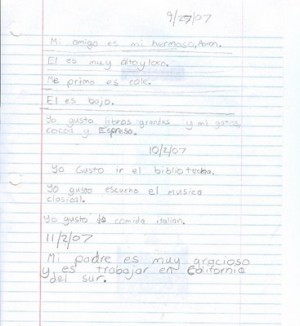 9/27/07
Mi amigo es mi hermoso, Aron.
El es muy alto y loco.
Me primo es cole.
El es bajo.
Yo gusto libros grandes y mi gatos,
cocos y Espreso.
10/2/07
Yo Gusto ir el biblioteca.
Yo gusto escucho el musica
clasical.
Yo gusto de comida italian.
11/2/07
Mi padre es muy gracioso
y es trabajar en California
del sur.